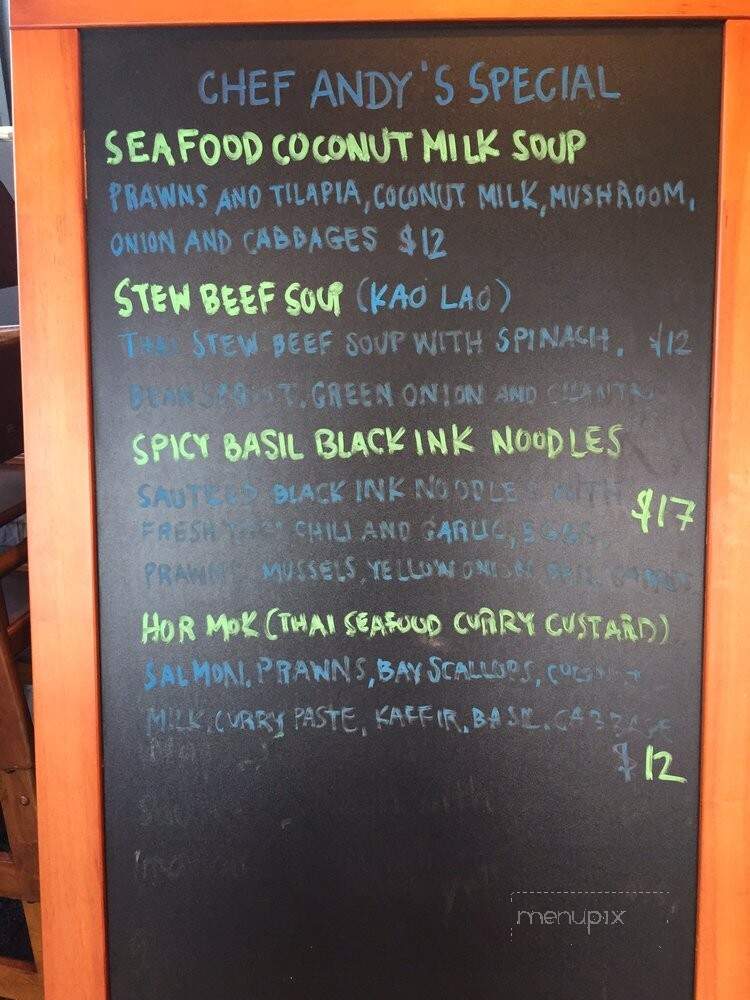 CHEF ANDY'S SPECIAL
SEAFOOD COCONUT MILK SOUP
PRAWNS AND TILAPIA, COCONUT MILK, MUSHROOM,
ONION AND CABBAGES $12
STEW BEEF SOUP (KAO LAO)
THAI STEW BEEF SOUP WITH SPINACH, $12
BEAN SPROUT, GREEN ONION AND CILANTRO
SPICY BASIL BLACK INK NOODLES
SAUTEED BLACK INK NOODLES WITH
$17
FRESH THAI CHILI AND GARLIC, EGGS,
PRAWNS MUSSELS, YELLOW ONION, BASIL
HOR MOK (THAI SEAFOOD CURRY CUSTARD)
SALMON, PRAWNS, BAY SCALLOPS, COCONUT
MILK, CURRY PASTE, KAFFIR, BASIL, CABBAGE
$12
menupix